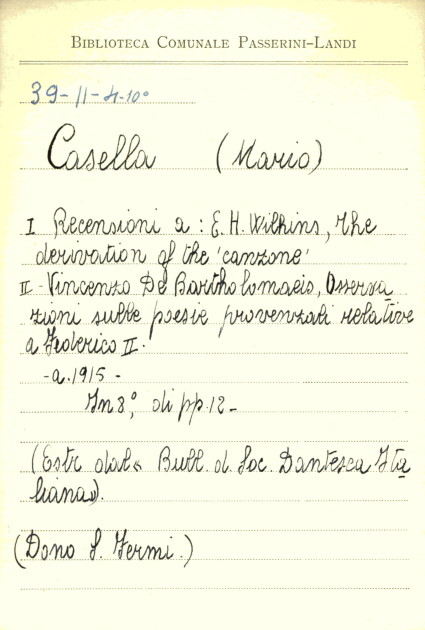 BIBLIOTECA COMUNALE PASSERINI-LANDI
39-II-4-10°
Casella (Mario)
I Recensioni a : E. H. Wilkins, The
derivation of the 'canzone'
II - Vincenzo De Bartholomaeis, Osserva
zioni sulle poesie provenzali relative
a Federico II.
- a. 1915 -
In 8°, di pp. 12 -
(Estr. dal « Bull. d. Soc. Dantesca Ita
liana»).
(Dono S. Fermi.)